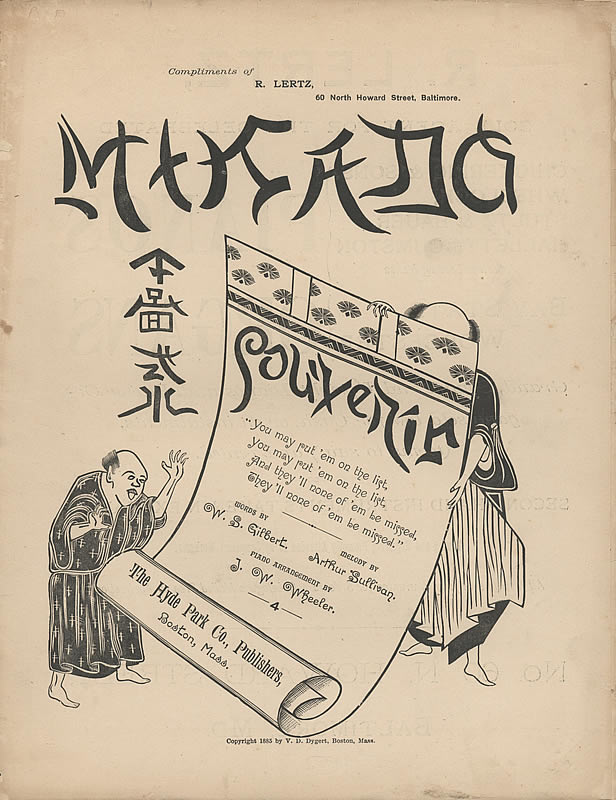 Compliments of
R. LERTZ,
60 North Howard Street, Baltimore.
MIKADO
Souvenir
"You may put 'em on the list,
You may put 'em on the list,
And they'll none of 'em be missed,
They'll none of 'em be missed."
WORDS BY
W. S. Gilbert.
MELODY BY
Arthur Sullivan.
PIANO ARRANGEMENT BY
J. W. Wheeler.
4
The Hyde Park Co., Publishers,
Boston, Mass.
Copyright 1885 by V. D. Dygert, Boston, Mass.